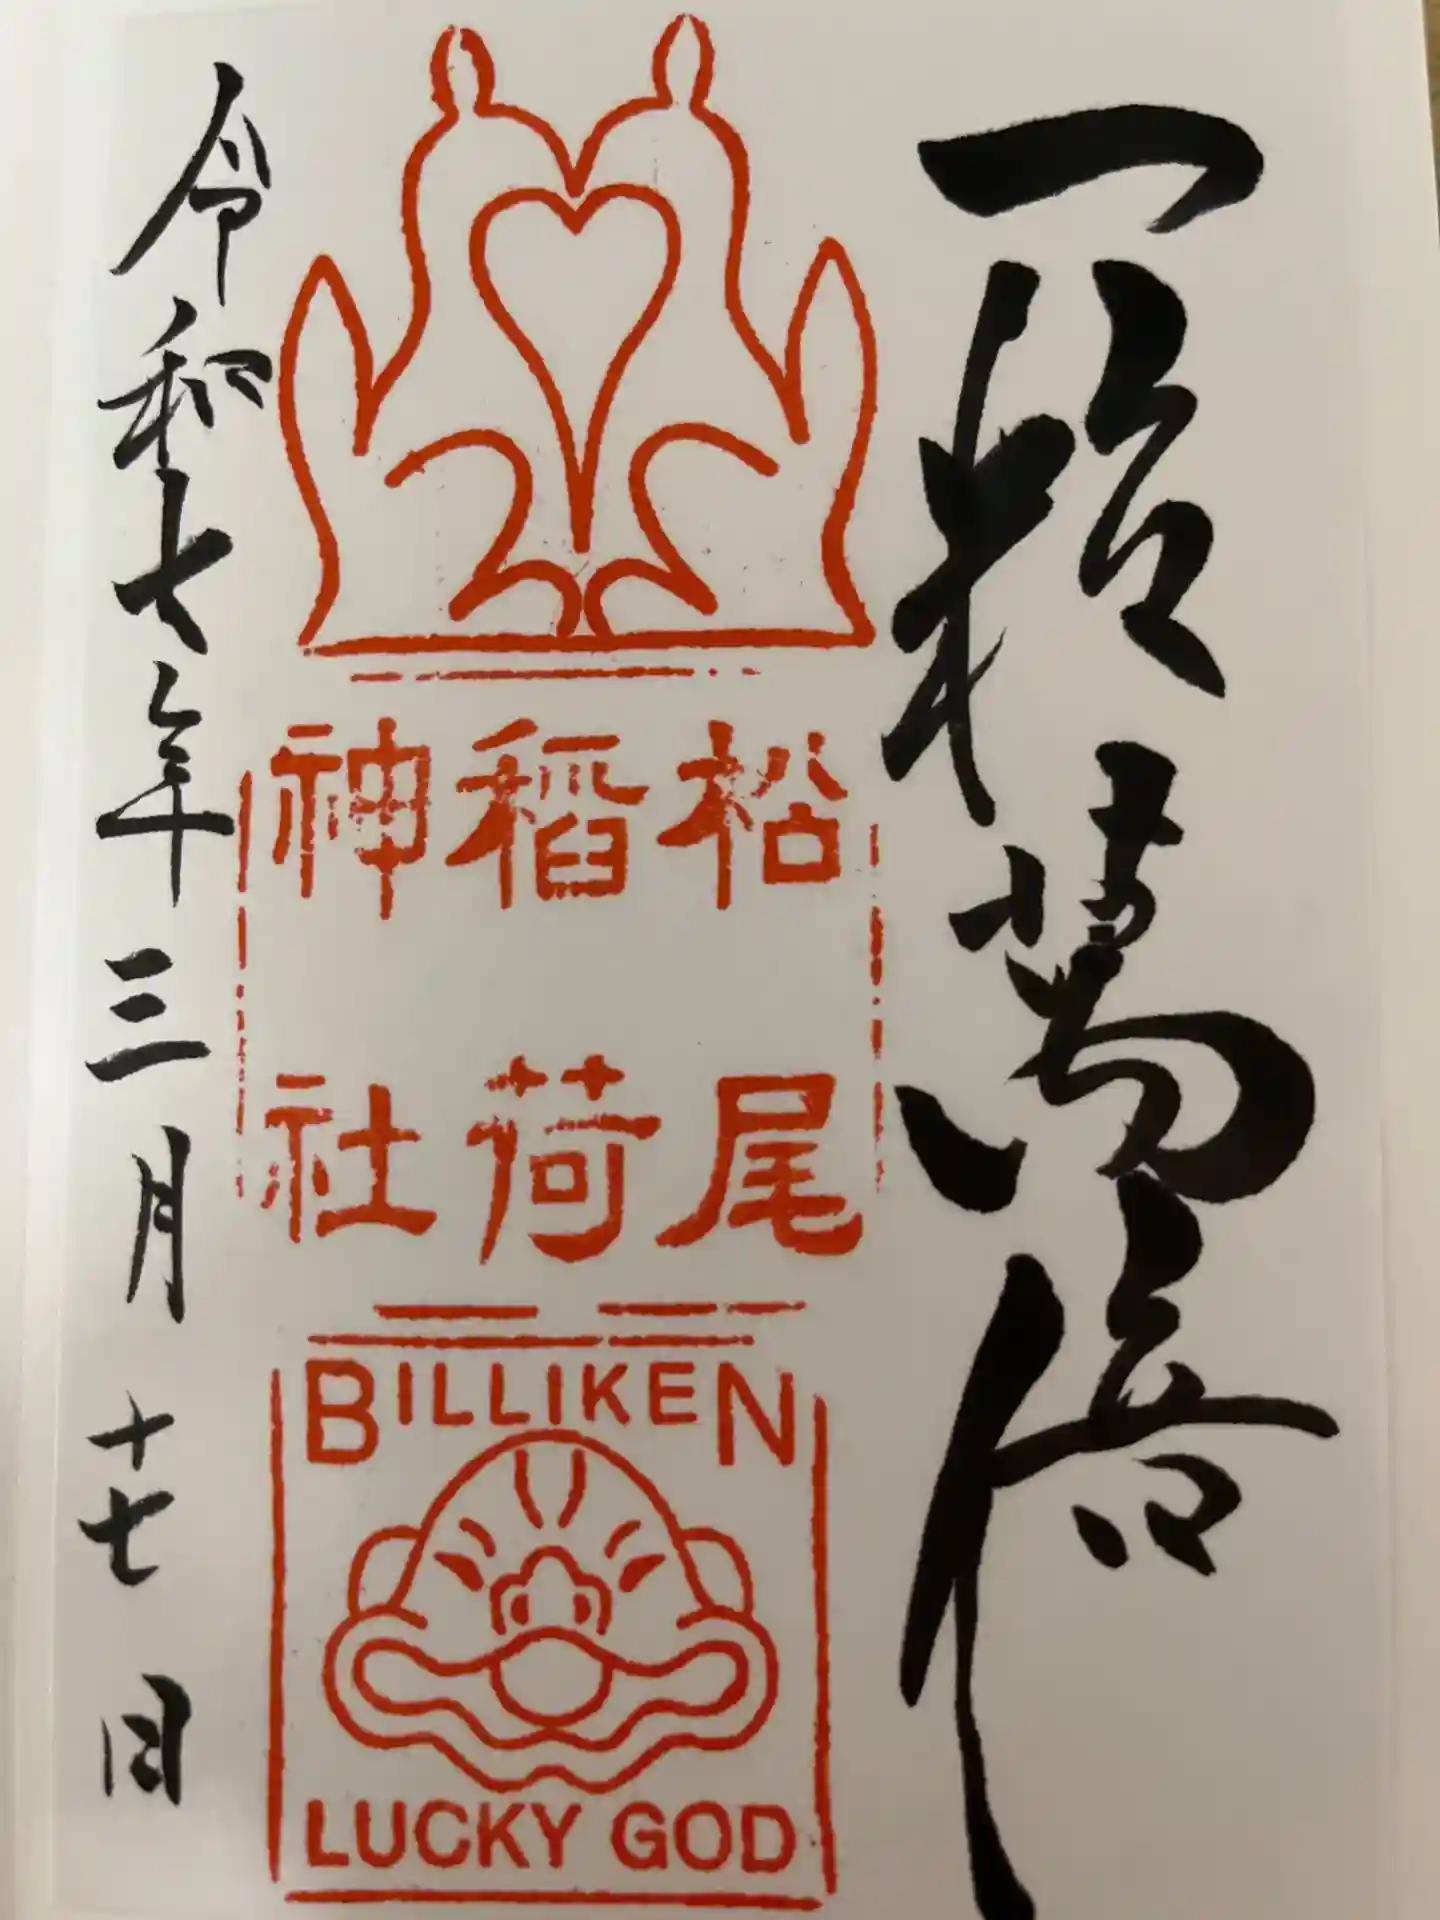 一粒萬倍
松尾
稲荷
神社
BILLIKEN
LUCKY GOD
令和七年三月十七日